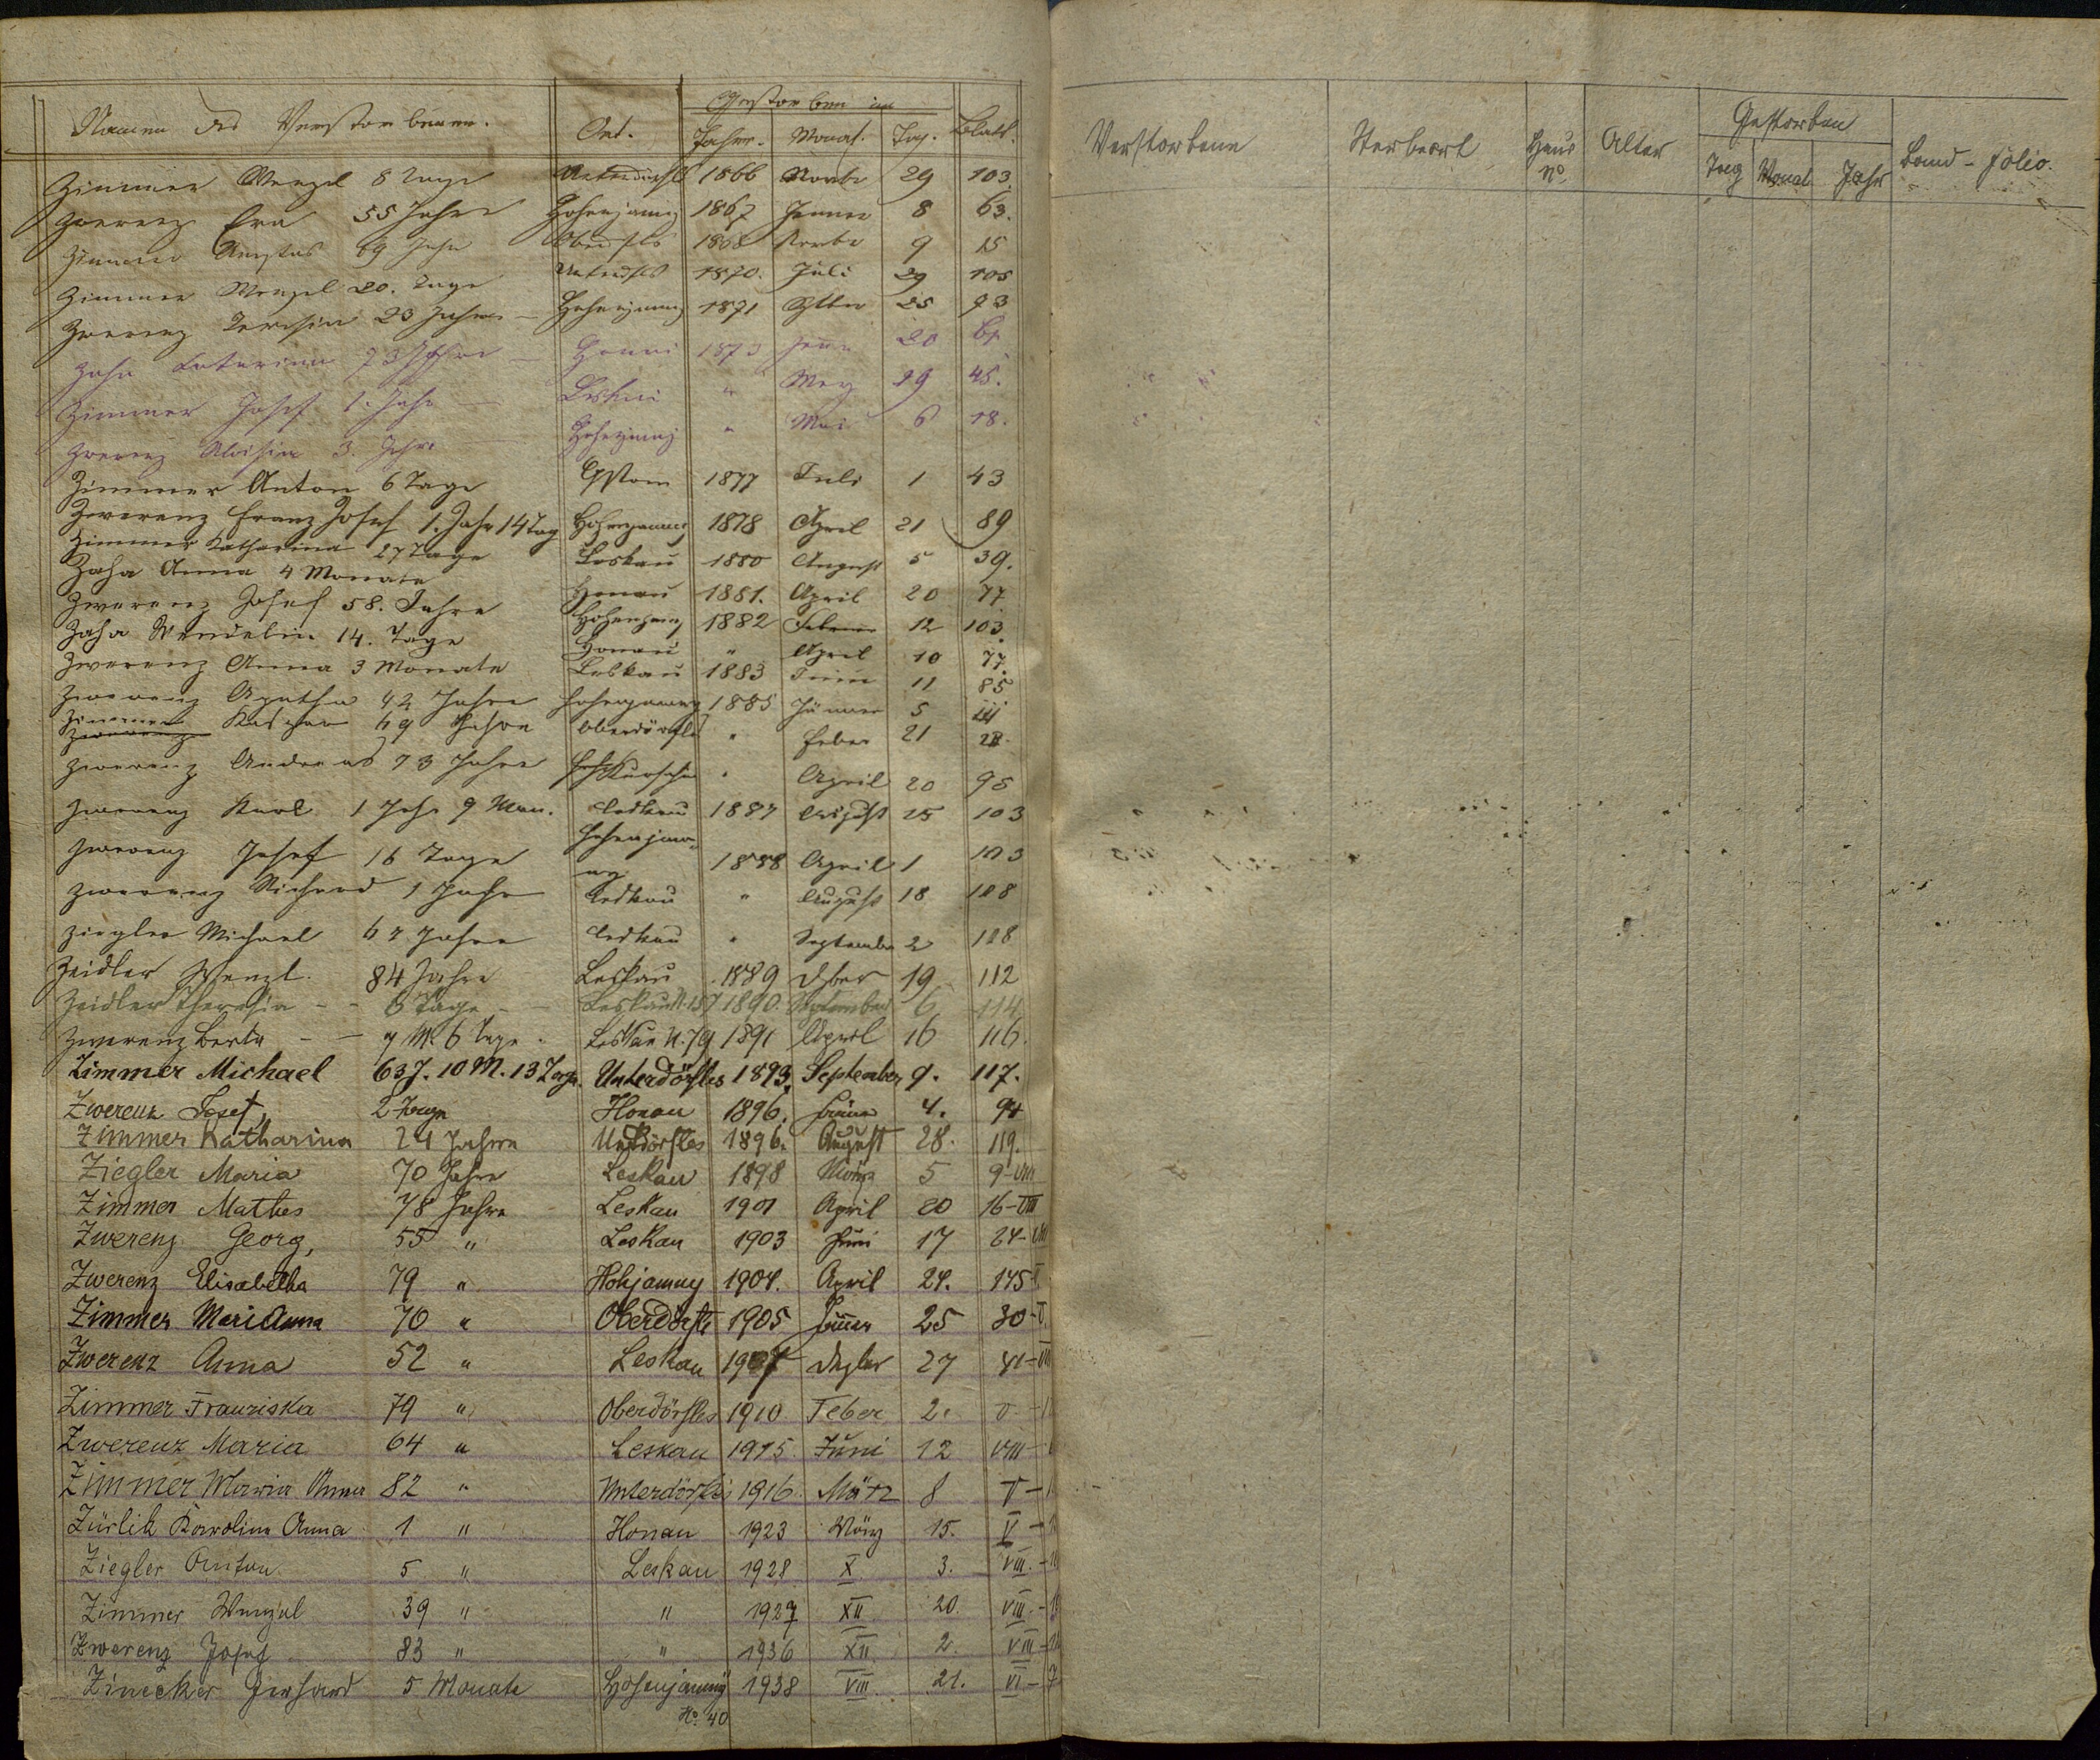 Namen des Verstorbenen. Ort. Gestorben im Blatt.
Jahre. Monat. Tag.
Zimmer Wenzel 8 Tage Unterdörfls 1866 Novbr 29 103.
Zwerenz Eva 55 Jahre Hohenjamny 1867 Jenner 8 63.
Zimmer 69 Jahr 1868 Novbr 9 15
Zimmer Wenzel 20. Tage Unterdfls 1870. Juli 29 105
Zwerenz Theresia 23 Jahre – Hohenjamny 1871 25 93
Zaha Katarina 73 Jahre – Honau 1873 20
Zimmer Josef 1. Jahr – Leskau " 29 45.
Zwerenz Aloisia 3. Jahre Hohenjamny " Mai 6 18.
Zimmer Anton 6 Tage 1877 Juli 1 43
Zwerenz Franz Josef 1. Jahr 14 Tag Hohenjamny 1878 April 21 89
Zimmer Katharina 27 Tage Leskau 1880 August 5 39.
Zaha Anna 4 Monate Honau 1881. April 20 77
Zwerenz Josef 58. Jahre Hohenjamny 1882 Feber 12 103.
Zaha Wendelin 14. Tage Honau " April 10 77.
Zwerenz Anna 3 Monate Leskau 1883 Juni 11 85
Zwerenz Agatha 42 Jahre Hohenjamny 1885 Jänner 5
Zimmer Kaspar 69 Jahre Oberdörfls " Feber 21 28
Zwerenz
Zwerenz Andreas 73 Jahre " April 20 95
Zwerenz Karl 1 Jahr 9 Mon. Leskau 1887 August 25 103
Zwerenz Josef 16 Tage Hohenjam-
ny 1888 April 1 103
Zwerenz Richard 1 Jahr Leskau " August 18 108
Ziegler Michael 67 Jahre Leskau " September 2 108
Zeidler Wenzl. 84 Jahre Leskau 1889 19 112
Zeidler Theresia – – 8 Tage – Leskau N. 157 1890. September 6 114
Zwerenz Berta – – 7 M. 6 Tage. Leskau N. 79 1891 April 16 116.
Zimmer Michael 63 J. 10 M. 13 Tage. Unterdörfles 1893. September 9. 117.
Zwerenz Josef, 2 Tage Honau 1896. 4. 94
Zimmer Katharina 24 Jahre Untdörfles 1896. August 28. 119.
Ziegler Maria 70 Jahre Leskau 1898 März 5 9-VIII
Zimmer Mathes 78 Jahre Leskau 1901 April 20 16-VIII
Zwerenz Georg, 55 " Leskau 1903 Juni 17 24-VIII
Zwerenz Elisabetha 79 " Hohjamny 1904. April 24. 145
Zimmer Mari Anna 70 " Oberdörfls 1905 Jänner 25 30-V.
Zwerenz Anna 52 " Leskau 1907 Dezbr 27 41-VIII
Zimmer Franziska 79 " Oberdörfles 1910 Feber 2. V
Zwerenz Maria 64 " Leskau 1915 Juni 12 VIII
Zimmer Maria Anna 82 " Unterdörfles 1916 März 8 V –
Zürlik Karolina Anna 1 " Honau 1923 März 15. V –
Ziegler Anton 5 " Leskau 1928 X 3. VIII. –
Zimmer Wenzel 39 " " 1927 XII 20. VIII. –
Zwerenz Josef 83 " " 1936 XII. 2. VIII –
Zinecker Gerhard 5 Monate Hohenjamny 1938 VIII. 21. VI –
No 40
Verstorbene Sterbeort Haus No. Alter Gestorben Band – folio.
Tag Monat Jahr